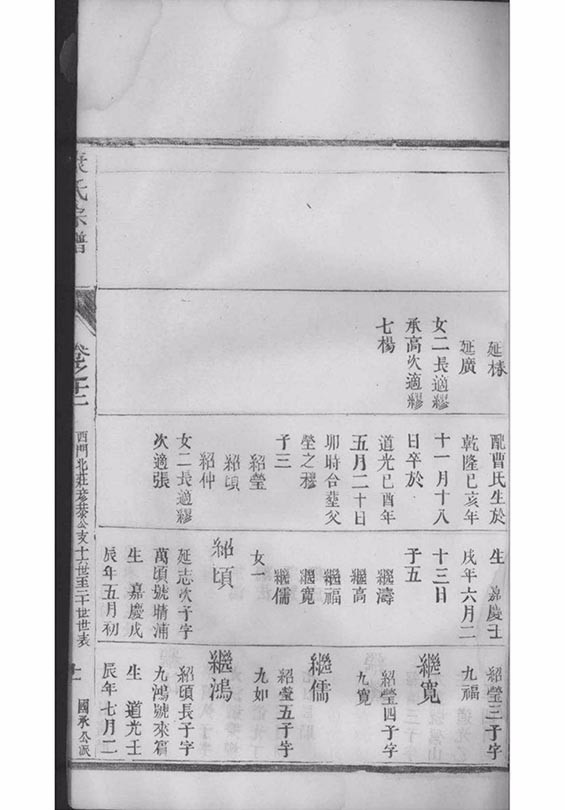 延椿
延廣
女二長適繆
承高次適繆
七楊
配曹氏生於
乾隆己亥年
十一月十八
日卒於
道光己酉年
五月二十日
卯時合塟父
塋之穆
子三
紹瑩
紹頃
紹仲
女二長適繆
次適張
生 嘉慶壬
戌年六月二
十三日
子五
繼濤
繼高
繼福
繼寬
繼儒
女一
紹頃
延志次子字
萬頃號晴浦
生 嘉慶戊
辰年五月初
紹瑩三子字
九福
繼寬
紹瑩四子字
九寬
繼儒
紹瑩五子字
九如
繼鴻
紹頃長子字
九鴻號來賓
生 道光壬
辰年七月二
氏宗譜
卷之十二
西門北莊彥恭公支十一世至二十世世表
十一
國承公派